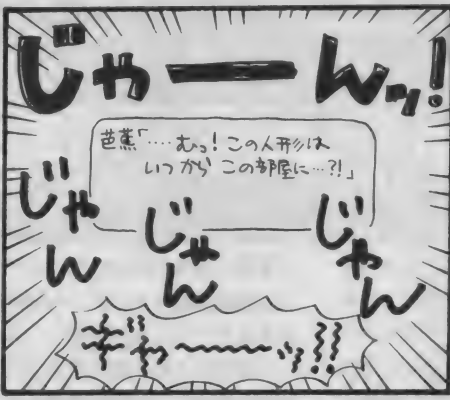 じゃーんッ!
芭蕉「‥‥むっ!この人形は
いつから この部屋に…?!」
じゃん
じゃん
じゃん
ギャーッ!!